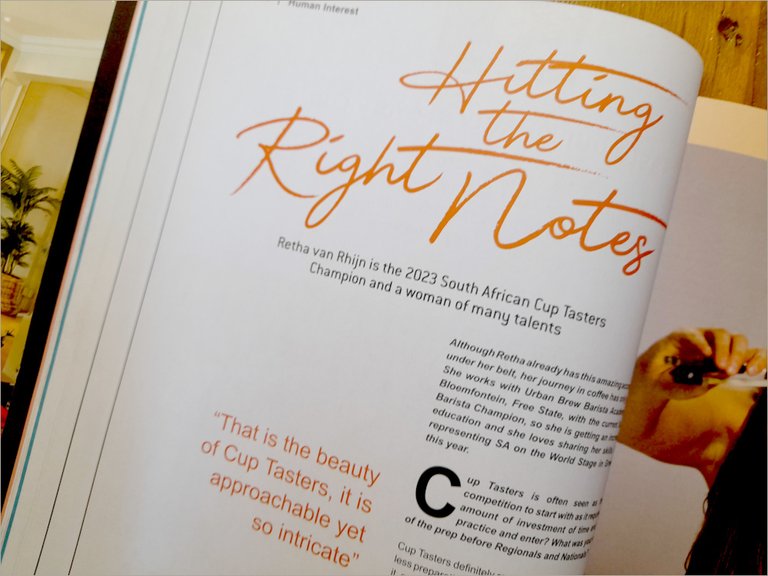 Human Interest
Hitting
the
Right Notes
Retha van Rhijn is the 2023 South African Cup Tasters
Champion and a woman of many talents
Although Retha already has this amazing
under her belt, her journey in coffee has
She works with Urban Brew Barista
Bloemfontein, Free State, with the
Barista Champion, so she is getting an
education and she loves sharing her
representing SA on the World Stage in
this year.
Cup Tasters is often seen as
competition to start with as it
amount of investment of time
practice and enter? What was
of the prep before Regionals and
Cup Tasters definitely
less
“That is the beauty
of Cup Tasters, it is
approachable yet
so intricate”